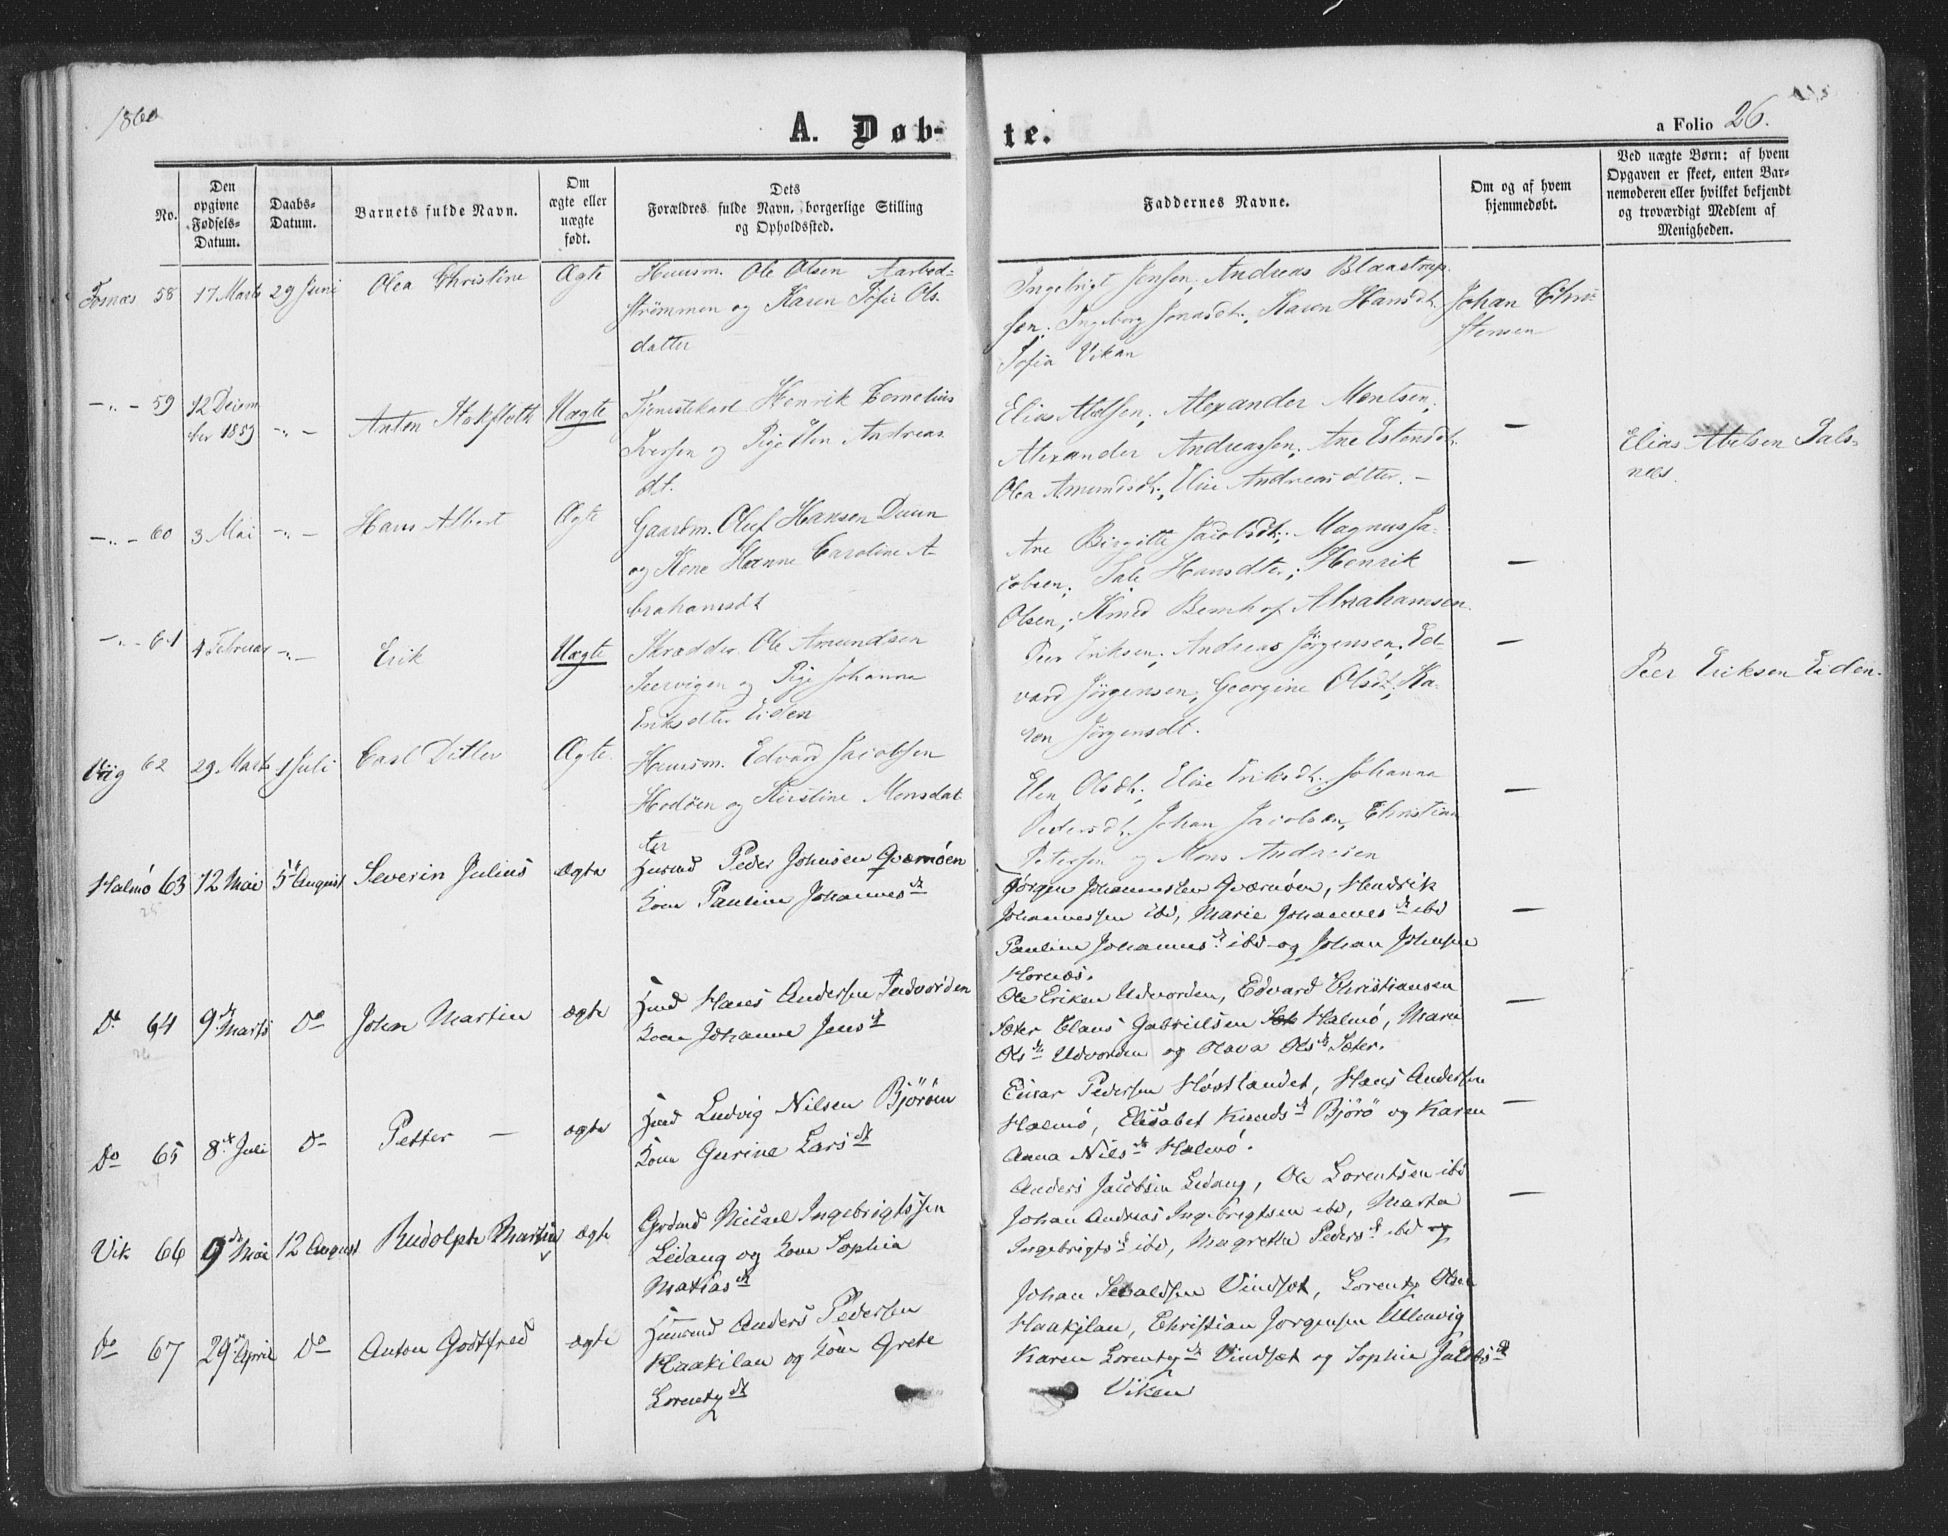 1860
A. Døb-
te.
a Folio 26.
No.
Den
opgivne
Fødsels-
Datum.
Daabs-
Datum.
Barnets fulde Navn.
Om
ægte eller
uægte
født.
Dets
Forældres fulde Navn, borgerlige Stilling
og Opholdssted.
Faddernes Navne.
Om og af hvem
hjemmedøbt.
Ved uægte Børn: af hvem
Opgaven er skeet, enten Bar-
nemoderen eller hvilket bekjendt
og troværdigt Medlem af
Menigheden.
Fosnæs 58 17 Marts 29 Juni Olea Christine Ægte
Huusm. Ole Olsen Aarbed-
strømmen og Karen Sofie Ols-
datter
Ingebrigt Jensen, Andreas
sen; Ingeborg Jonasdt., Karen Hansdt.
Sofia Vikan
Johan Chri-
stensen
-„- 59 12 Decem
ber 1859 -„- Anton Hokfleth Uægte
Tjenestekarl Henrik Cornelius
Iversen og Pige Elen Andreas
dt.
Elias Abelsen, Alexander Mentsen,
Alexander Andreassen, Ane Estensdt.
Olea Amundsdt., Elise Andreasdtter. -
-
Elias Abelsen Sals-
næs.
-„- 60 3 Mai -„- Hans Albert Ægte
Gaardm. Oluf Hansen Duun
og Kone Hanne Caroline A-
brahamsdt
Ane Birgitte Jacobsdt., Magnus Ja-
cobsen, Hansdtter; Henrik
Olsen, Abrahamsen
-
-„- 61 4 Februar -„- Erik Uægte
Skrædder Ole Amundsen
Seervigen og Pige Johanna
Eriksdtr Eiden
Peer Eriksen, Andreas Jörgensen, Ed-
vard Jörgensen, Georgine Olsdt., Ka-
ren Jörgensdt.
-
Peer Eriksen Eiden.
Viig 62 29 Marts 1 Juli Carl Ditlev Ægte
Huusm. Edvard Jacobsen
Hodöen og Kirstine Monsdat
ter
Elen Olsdt., Elise Eriksdt., Johanna
Pedersdt. Johan Jacobsen, Christian
Petersen og Mons Andresen
-
Halmö 63 12 Mai 5te August Severin Julius ægte
25
Huusmd Peder Johnsen Qværnöen
Kone Pauline Johannesdt
Jörgen Johannessen Qværnöen, Hendrik
Johannessen ibd, Marie Johannesdt ibd
Pauline Johannesdt ibd og Johan Johnsen
Hornæs.
-
Do 64 9de Marts Do Johan Martin ægte
26
Hmd Hans Andersen Indvorden
Kone Johanne Jensdt
Ole Eriksen Udvorden, Edvard Christiansen
Sæter Claus Gabrielsen Halmö, Maren
Olsdt Udvorden og Olava Olsdt Sæter.
-
Do 65 8de Juli Do Petter - ægte
27
Hmd Ludvig Nilsen Björöen
Kone Gurine Larsdt
Einar Pedersen Höstlandet, Hans Andersen
Halmö, Elisabet Knudsdt Björö og Karen
Anna Nilsdt Halmö.
-
Vik 66 9de Mai 12 August Rudolph Martin ægte
Grdmd Micael Ingebrigtssen
Lidang og Kone Sophia
Matiasdt
Anders Jacobsen Lidang, Ole Lorentsen ibd
Johan Andreas Ingebrigtsen ibd, Marta
Ingebrigtsdt ibd, Magrethe Pedersdt ibd og
-
Do 67 29de April Do Anton Godtfred ægte
Huusmd Anders Pedersen
Haakilan og Kone Grete
Lorentzdt
Johan Sevaldsen Vindsæt, Lorentz Olsen
Haakilan, Christian Jorgensen Ullenvig
Karen Lorentzdt Vindsæt og Sophie Jakobsdt
Viken